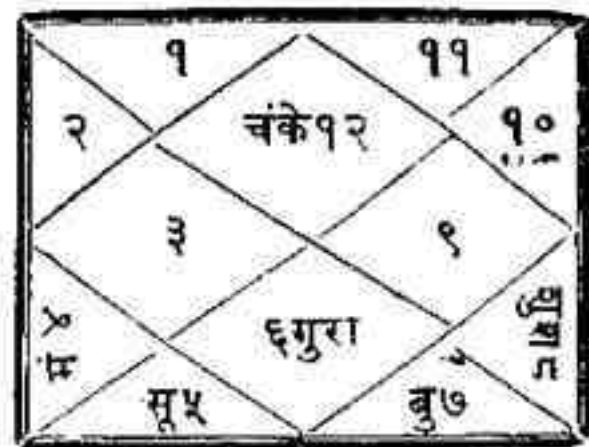 १ ११
२ चंके१२ १०
३ ९
मं ४ ६गुरा शुश८
सू५ बु७